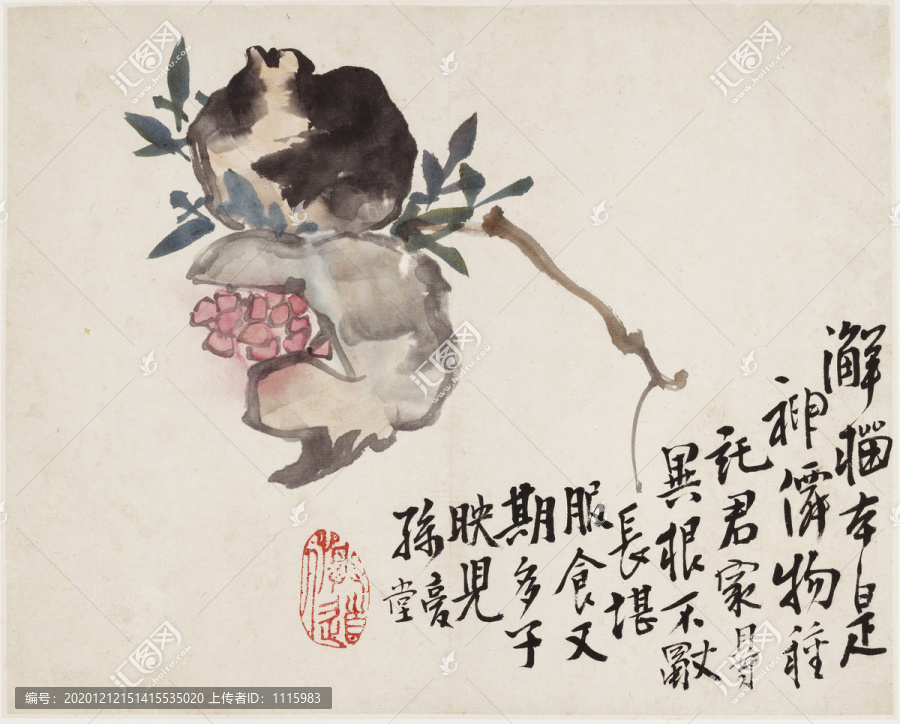 澥榴本是
神僊物種
託君家最
異根不
長堪
服食又
期多子
映兒
孫
堂
汇图网
www.huitu.com
编号：20201212151415535020 上传者ID：1115983